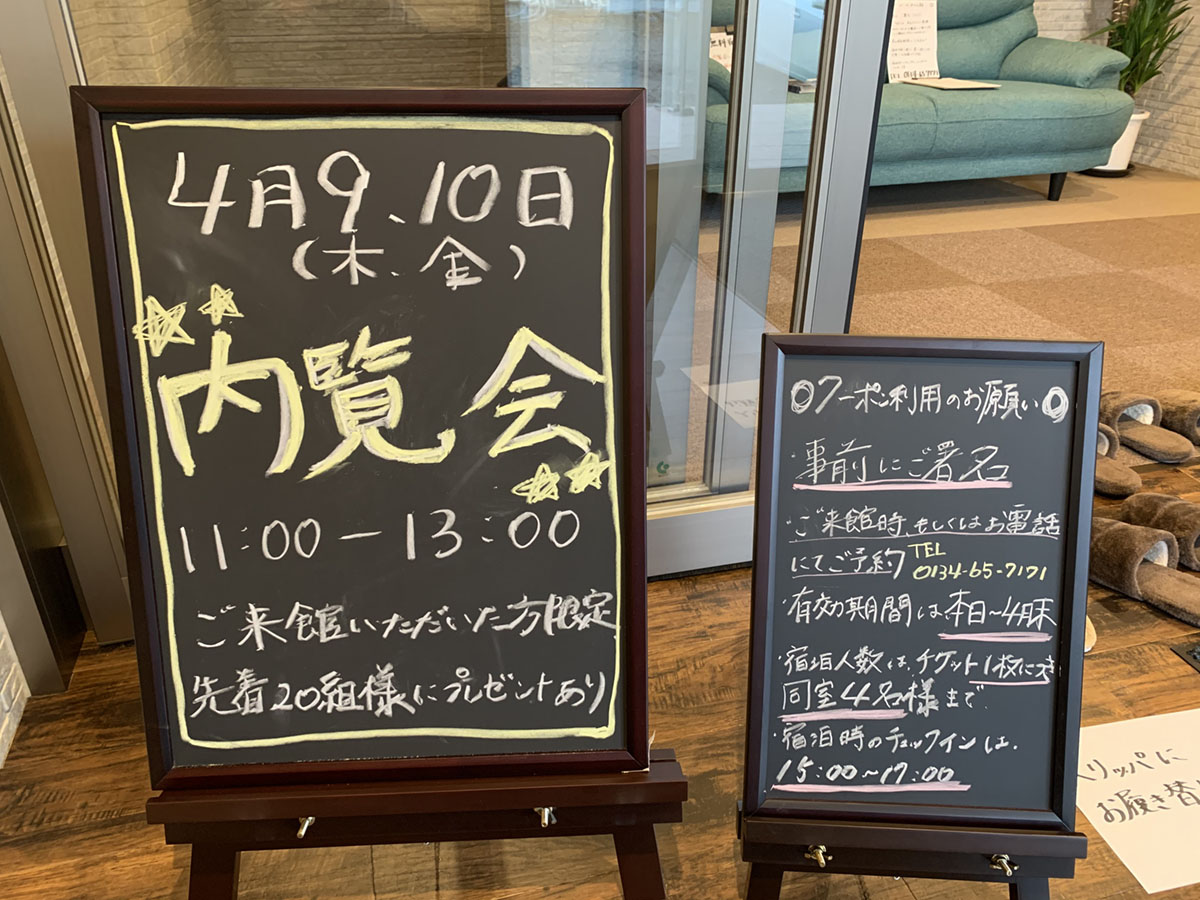 4月9、10日
(木、金)
内覧会
11:00-13:00
ご来館いただいた方限定
先着20組様にプレゼントあり
◎クーポン利用のお願い◎
・事前にご署名
・ご来館時、もしくはお電話
にてご予約 TEL
0134-65-7171
・有効期間は本日~4月末
・宿泊人数は、チケット1枚につき
同室4名様まで
・宿泊時のチェックインは、
15:00~17:00
スリッパに
お履き替